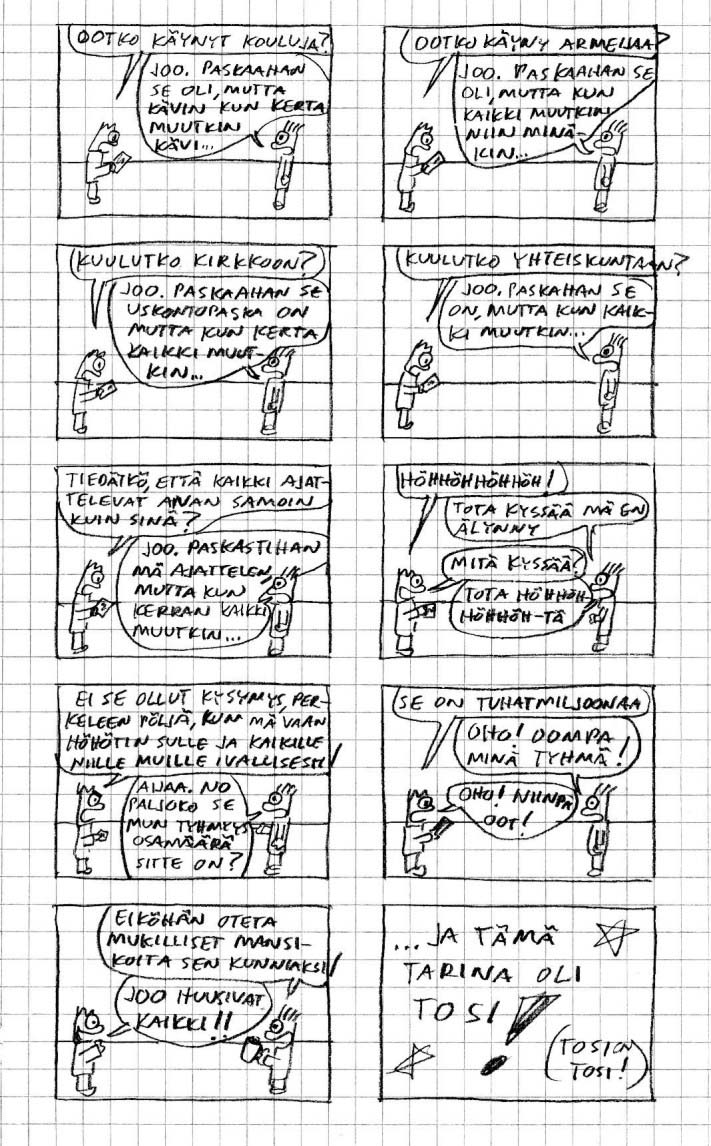 OOTKO KÄYNYT KOULUJA?
JOO. PASKAAHAN
SE OLI, MUTTA
KÄVIN KUN KERTA
MUUTKIN
KÄVI...
OOTKO KÄYNY ARMEIJAA?
JOO. PASKAAHAN SE
OLI, MUTTA KUN
KAIKKI MUUTKIN
NIIN MINÄ-
KIN...
KUULUTKO KIRKKOON?
JOO. PASKAAHAN SE
USKONTOPASKA ON
MUTTA KUN KERTA
KAIKKI MUUT-
KIN...
KUULUTKO YHTEISKUNTAAN?
JOO. PASKAHAN SE
ON, MUTTA KUN KAIK-
KI MUUTKIN...
TIEDÄTKÖ, ETTÄ KAIKKI AJAT-
TELEVAT AIVAN SAMOIN
KUIN SINÄ?
JOO. PASKASTIHAN
MÄ AJATTELEN
MUTTA KUN
KERRAN KAIKKI
MUUTKIN...
HÖHHÖHHÖHHÖH!
TOTA KYSSÄÄ MÄ EN
ÄLYNNY
MITÄ KYSSÄÄ?
TOTA HÖHHÖH
HÖHHÖH-TÄ
EI SE OLLUT KYSYMYS, PER-
KELEEN PÖLJÄ, KUN MÄ VAAN
HÖHÖTIN SULLE JA KAIKILLE
NIILLE MUILLE IVALLISESTI!
AIJAA. NO
PALJOKO SE
MUN TYHMYYS-
OSAMÄÄRÄ
SITTE ON?
SE ON TUHATMILJOONAA
OHO! OOMPA
MINÄ TYHMÄ!
OHO! NIINPÄ
OOT!
EIKÖHÄN OTETA
MUKILLISET MANSI-
KOITA SEN KUNNIAKSI!
JOO HUUSIVAT
KAIKKI!!
...JA TÄMÄ
TARINA OLI
TOSI!
(TOSION
TOSI!)